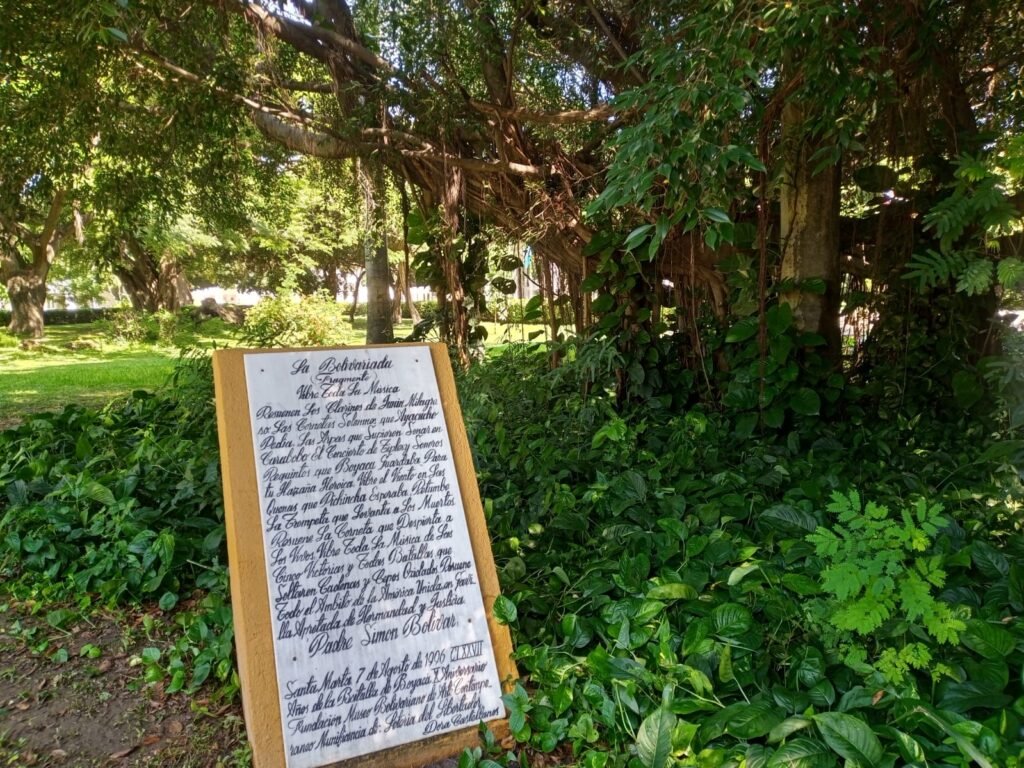 La Bolivariada
Fragmento
Vibro Toda La Música
Resuenen Los Clarines de Junin Milagro
so: Las Cornetas Solemnes que Ayacucho
Pedia. Las Arpas que Supieron Sonar en
Carabobo. El Concierto de Tiples y Sonoros
Requintos que Boyaca Guardaba Para
tu Hazaña Heroica Vibre el Viento en Las
Quenas que Pichincha Esperaba Retumbe
La Trompeta que Levanta a Los Muertos
Resuene La Corneta que Despierta a
Los Vivos. Vibro Toda La Música de Las
Cinco Victorias y Todas Batallas que
Soltaron Cadenas y Cepos Oxidados Resuene
Todo el Ambito de la America Unida en
lla Apretada de Hermandad y Justicia
Padre Simon Bolívar
Santa Marta 7 de Agosto de 1996 CLXXVII
Años de la Batalla de Boyaca X Aniversario
Fundacion Museo Bolivariano de Arte Contempo
raneo Munificencia de:
Dora Castellanos